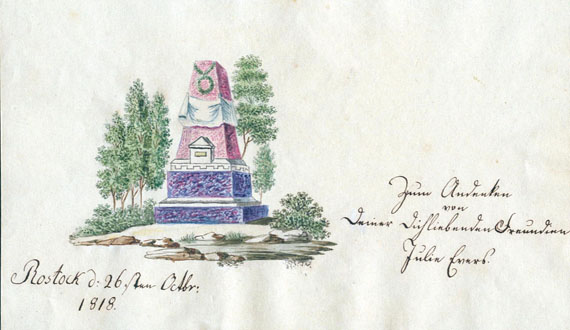 Zum Andenken
von
Deiner Dichliebenden Freundien
Julie Evers.
Rostock d: 26.sten Octbr:
1818.